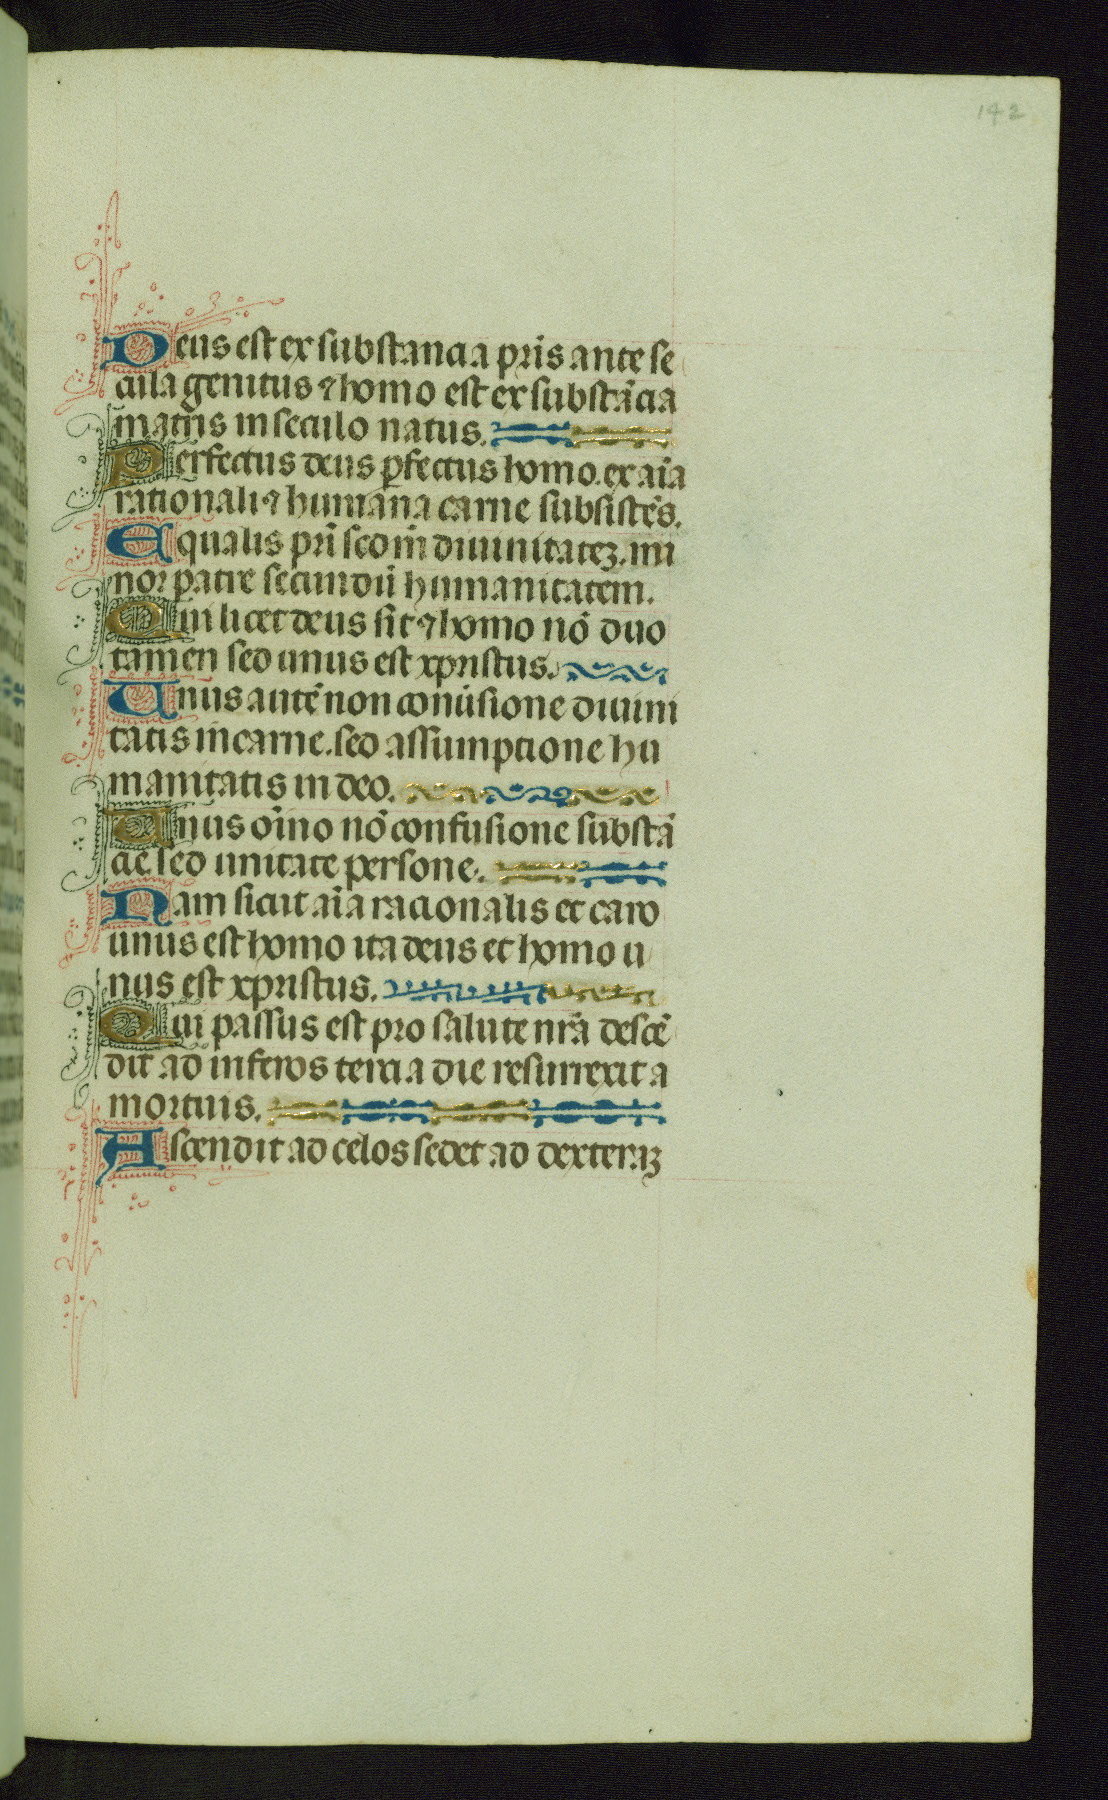 142
Deus est ex substancia pr̄is ante se
cula genitus ⁊ homo est ex substācia
matris in seculo natus.
Perfectus deus ꝑfectus homo. ex aīa
rationali ⁊ humana carne subsistēs.
Equalis pr̄i scd̄m diuinitateꝫ. mi
nor patre secundū humanitatem.
Qui licet deus sit ⁊ homo nō duo
tamen sed unus est xpristus.
Unus autē non conuersione diuini
tatis in carne. sed assumptione hu
manitatis in deo.
Unus oīno nō confusione substā
cie sed unitate persone.
Nam sicut aīa racionalis et caro
unus est homo ita deus et homo u
nus est xpristus.
Qui passus est pro salute nr̄a descē
dit ad inferos tercia die resurrexit a
mortuis.
Ascendit ad celos sedet ad dexteraꝫ